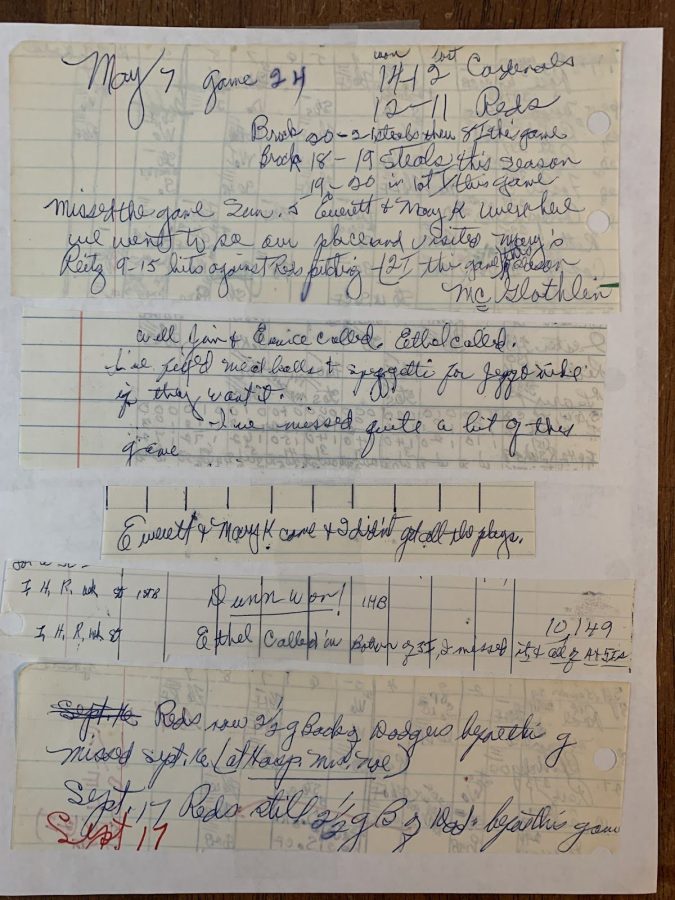 won lost
May 7 game 24 14-12 Cardinals
12-11 Reds
Brock 20-21 steals thru 8 I the game
Brock 18-19 steals this season
19-20 in 1st I this game
Missed the game Sun. 5 Everett & Mary K were here
we went to see our place and visited Mary's
Reitz 9-15 hits against Reds pitching - I the game season
McGlothlin
will, Jim & Eunice called. Ethel called.
I've fixed meat balls & spegetti for
if they want it.
I've missed quite a bit of this
game
Everett & Mary K came & I didn't get all the plays.
I, H, R, wk st 1stB Dunn won! 1HB
10,149
I, H, R, wk st Ethel called in Bottom of 5I, I missed it, & all of A+ 5Is
Sept. 16 Reds now 2½ g Back of Dodgers beg of this g
missed Sept. 16 (at Hosp.
Sept. 17 Reds still 2½ g B of Dod. beg of this game
Sept 17